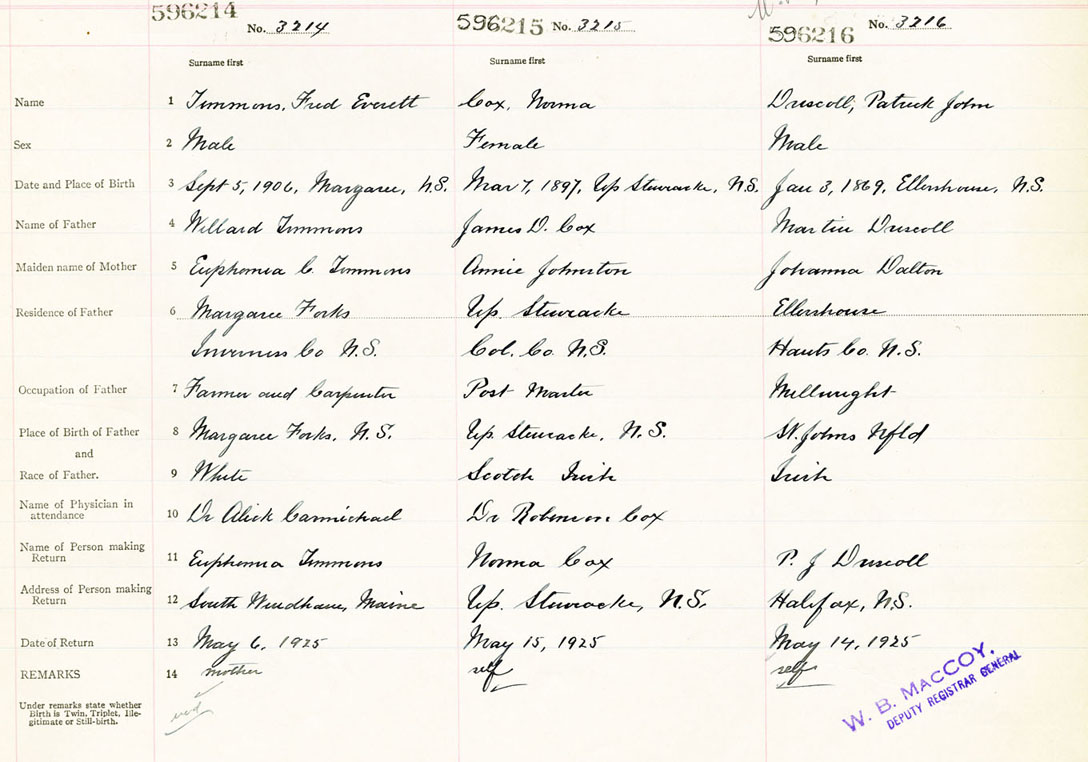 596214 No. 3214 596215 No. 3215 596216 No. 3216
Surname first Surname first Surname first
Name 1 Timmons, Fred Everett Cox, Norma Driscoll, Patrick John
Sex 2 Male Female Male
Date and Place of Birth 3 Sept 5, 1906, Margaree, N.S. Mar 7, 1897, Up Stewiacke, N.S. Jan 3, 1869, Ellershouse, N.S.
Name of Father 4 Willard Timmons James D. Cox Martin Driscoll
Maiden name of Mother 5 Euphemia C. Timmons Annie Johnston Johanna Dalton
Residence of Father 6 Margaree Forks Up. Stewiacke Ellershouse
Inverness Co N.S. Col. Co. N.S. Hants Co. N.S.
Occupation of Father 7 Farmer and Carpenter Post Master Millwright
Place of Birth of Father 8 Margaree Forks, N.S. Up. Stewiacke, N.S. St. Johns Nfld
and
Race of Father. 9 White Scotch Irish Irish
Name of Physician in
attendance 10 Dr Alick Carmichael Dr Robinson Cox
Name of Person making
Return 11 Euphemia Timmons Norma Cox P. J Driscoll
Address of Person making
Return 12 South Windham, Maine Up. Stewiacke, N.S. Halifax, N.S.
Date of Return 13 May 6, 1925 May 15, 1925 May 14, 1925
REMARKS 14 mother self self
Under remarks state whether
Birth is Twin, Triplet, Ille-
gitimate or Still-birth.
W. B. MACCOY.
DEPUTY REGISTRAR GENERAL